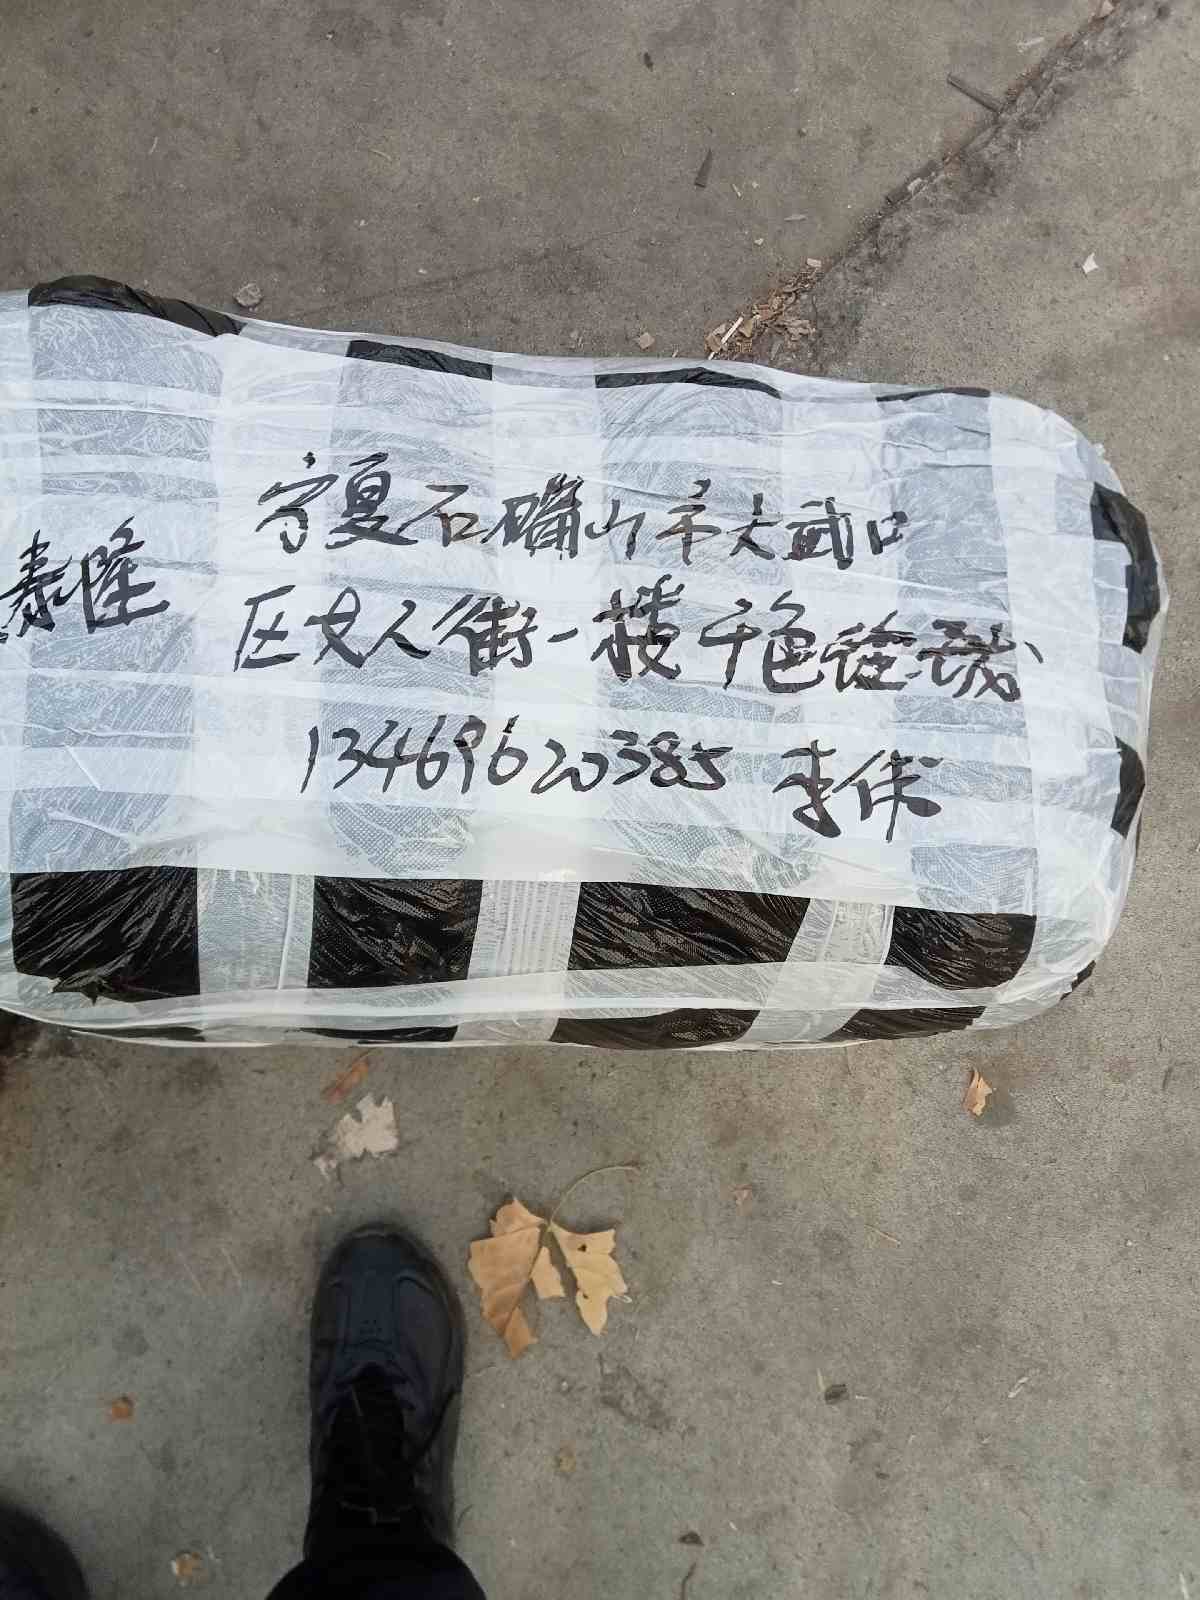 泰隆
宁夏石嘴山市大武口
区女人街一楼千色
13469620385 李伟